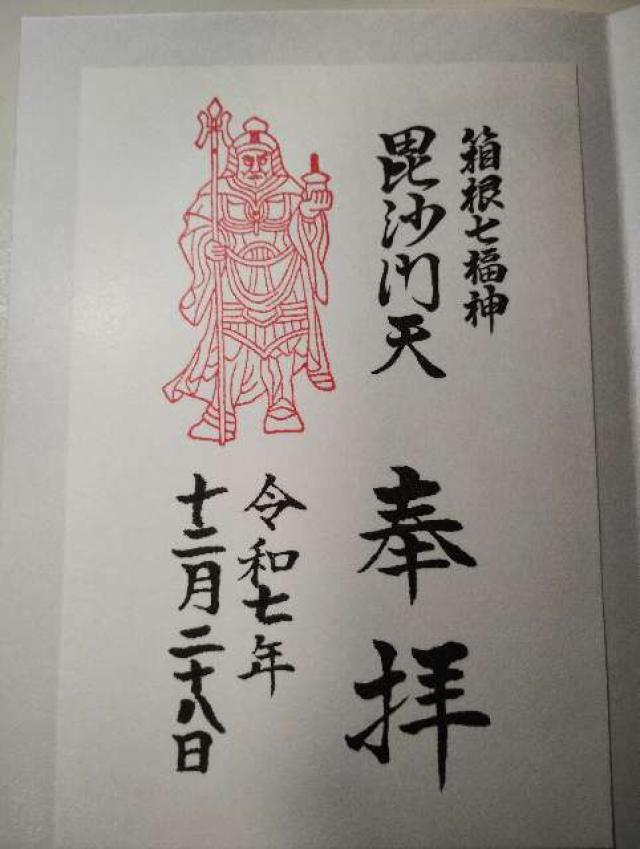 箱根七福神
毘沙門天
奉拝
令和七年
十二月二十八日